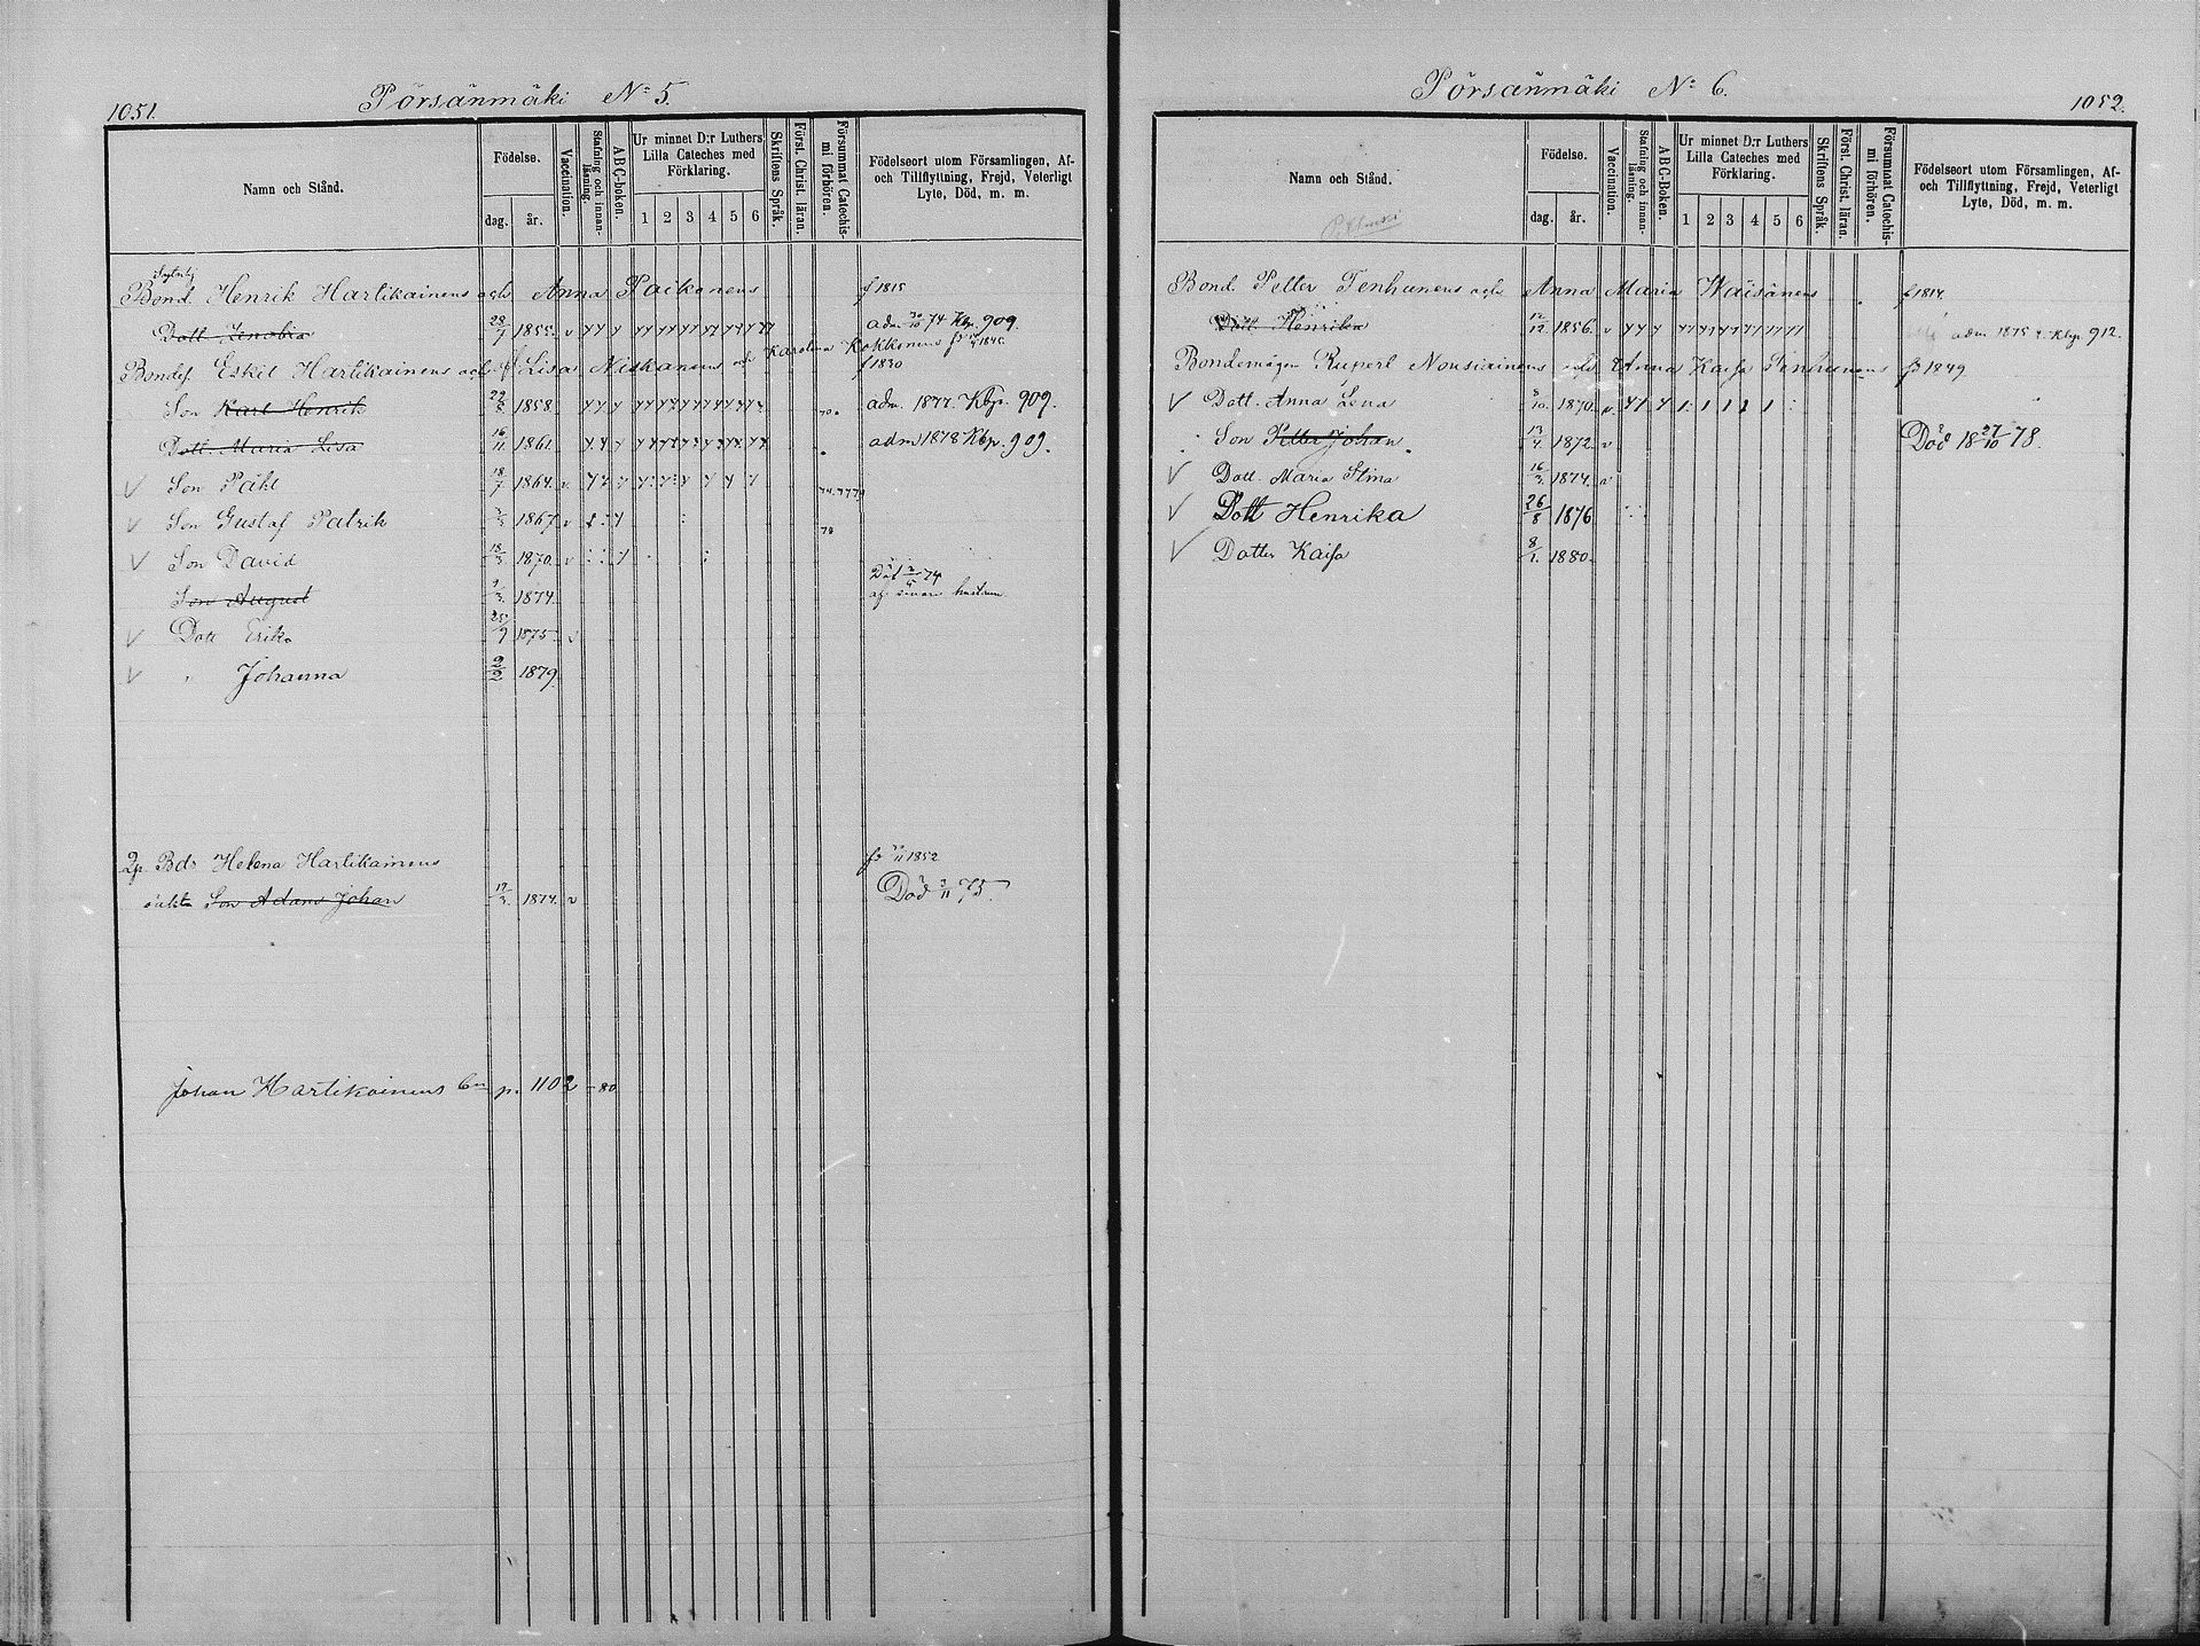 1051.
Pörsänmäki No 5.
Namn och Stånd.
Födelse.
dag.
år.
Vaccination.
Stafning och innan-läsning.
ABC-boken.
Ur minnet D:r Luthers Lilla Cateches med Förklaring.
1 2 3 4 5 6
Skriftens Språk.
Först. Christ. läran.
Försummat Catechis-mi förhören.
Födelseort utom Församlingen, Af- och Tillflyttning, Frejd, Veterligt Lyte, Död, m. m.
Bond. Henrik Hartikainens och Anna Paikonens f 1815
Dott. Zenobia 28/7 1855. v adm 30/10 74 Kbp. 909.
Karolina Kokkonens
Bondes. Eskil Hartikainens och Lisa Niskanens och f 1830
Son Karl Henrik 1858. adm. 1877. Kbp. 909.
Dott. Maria Lisa 16/11 1861. adm 1878 Kbp. 909.
V Son Påhl 18/7 1864. v.
V Son Gustaf Patrik 1867 v
V Son David 18/3. 1870. v
Son August 9/3. 1874. Död 74
V Dott Erika 25/9 1875 v
V " Johanna 2/2 1879.
Bds Helena Hartikainens 1852
oäkta Son Adam Johan 1874. v Död 75.
Johan Hartikainens p. 1102 -80
Pörsänmäki No 6.
1052.
Namn och Stånd.
Födelse.
dag.
år.
Vaccination.
Stafning och innan-läsning.
ABC-Boken.
Ur minnet D:r Luthers Lilla Cateches med Förklaring.
1 2 3 4 5 6
Skriftens Språk.
Först. Christ. läran.
Försummat Catechis-mi förhören.
Födelseort utom Församlingen, Af- och Tillflyttning, Frejd, Veterligt Lyte, Död, m. m.
Bond. Petter Tenhunens och Anna Maria Wäisänens f 1814.
Dott. Henrika 12/12. 1856. v adm 1875 Kbp. 912.
Bondemågen Rupert Nousiainens och Anna Kaisa Tenhunens 1849
V Dott. Anna Lena 8/10. 1870. v.
Son Petter Johan 13/4. 1872. v Död 18 27/10 78.
V Dott. Maria Stina 16/3. 1874. v
V Dott Henrika 26/8 1876
V Dotter Kaisa 8/1. 1880.